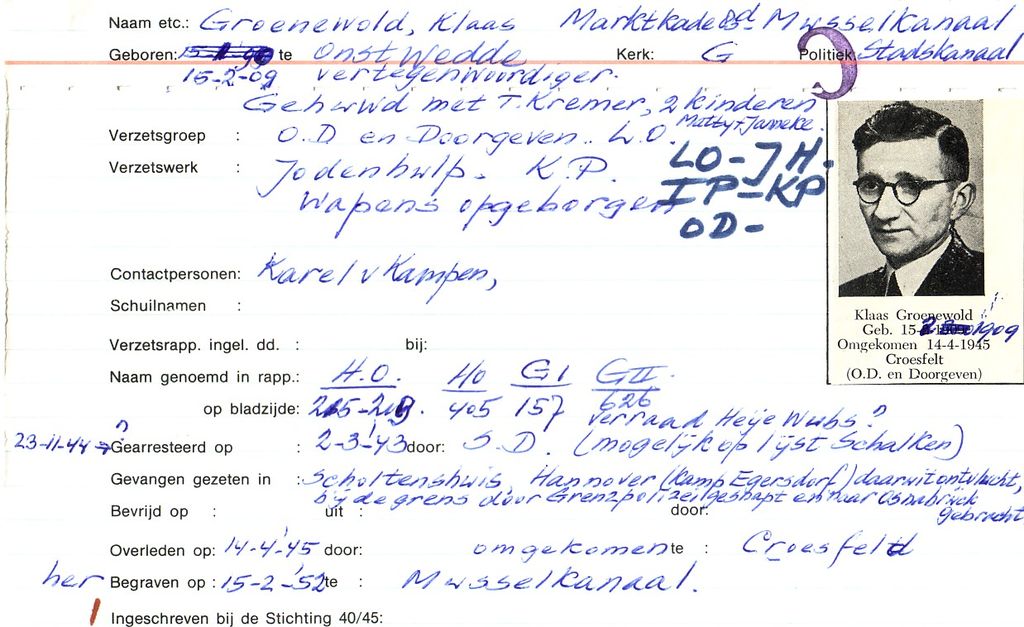 Naam etc.: Groenewold, Klaas Marktkade 8d Musselkanaal
Geboren: 15-11-90 te Onstwedde Kerk: G Politiek Stadskanaal
15-2-09 vertegenwoordiger.
Gehuwd met T. Kremer, 2 kinderen
Matty + Janneke.
Verzetsgroep : O.D en Doorgeven.. L.O.
Verzetswerk : Jodenhulp. K.P.
LO-JH.
Wapens opgeborgen IP-KP
OD-
Contactpersonen: Karel v Kampen,
Schuilnamen :
Verzetsrapp. ingel. dd. : bij:
Naam genoemd in rapp.: H.O. HO GI GII
op bladzijde: 215-219. 405 157 626
verraad Heije Wubs?
23-11-44 → ? Gearresteerd op : 2-3-'43 door: S.D. (mogelijk op lijst Schalken)
Gevangen gezeten in : Scholtenshuis, Hannover (Kamp Egersdorf) daaruit ontvlucht,
bij de grens door Grenzpolizei gesnapt en naar Osnabrück
gebracht
Bevrijd op : uit : door:
Overleden op: 14-4-'45 door: omgekomen te : Croesfeld
her Begraven op : 15-2-'52 te : Musselkanaal.
Ingeschreven bij de Stichting 40/45:
Klaas Groenewold
Geb. 15-2-1909
Omgekomen 14-4-1945
Croesfelt
(O.D. en Doorgeven)